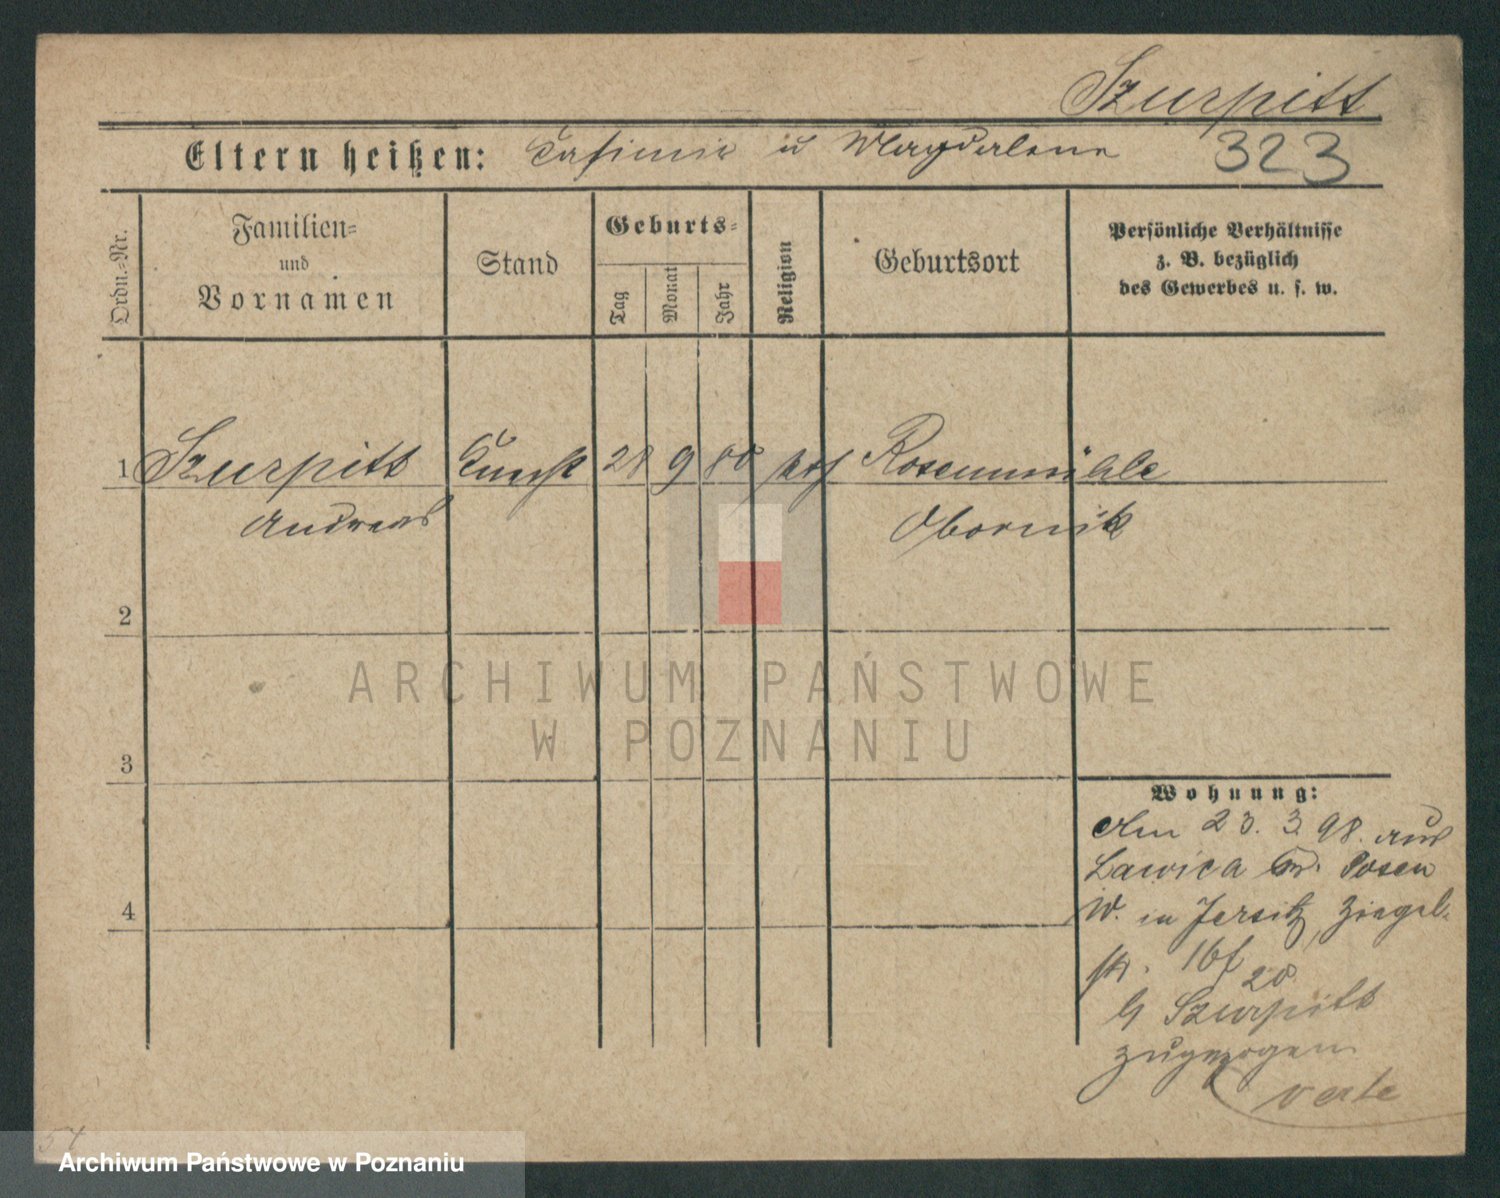 Szurpitt
Eltern heißen: Casimir u Magdalena
323
Ordn.=Nr.
Familien=
und
Vornamen
Stand
Geburts=
Tag
Monat
Jahr
Religion
Geburtsort
Persönliche Verhältnisse
z. B. bezüglich
des Gewerbes u. s. w.
1 Szurpitt 28 9 80 kth Rosenmühle
Andreas Obornik
2
ARCHIWUM PAŃSTWOWE
W POZNANIU
3
Wohnung:
Am 23. 3. 98. aus
Lawica Kr. Posen
W. in Jersitz, Ziegel-
str. 16f
20
b Szurpitt
zugezogen
verte
4
54
Archiwum Państwowe w Poznaniu